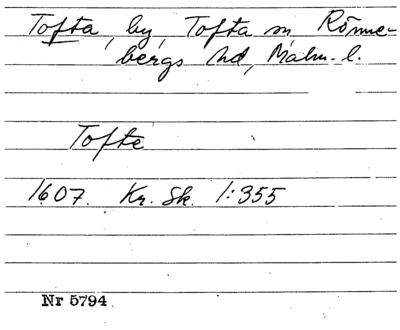 Tofta, by, Tofta sn Rönne-
bergs hd, Malm. l.
Tofte
1607. Kr. Sk. 1:355
Nr 5794